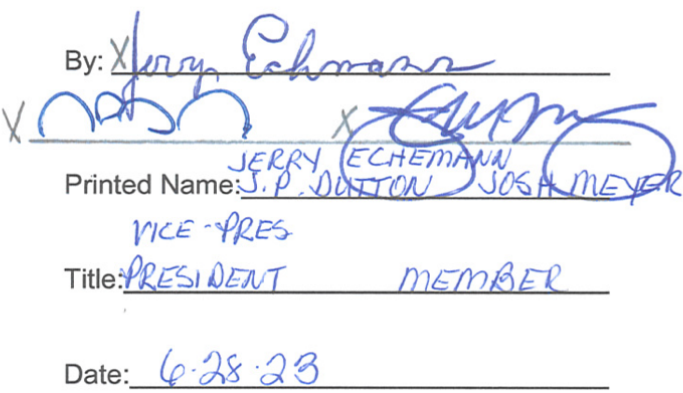 By: X Jerry Echmann
X X
JERRY ECHEMANN
Printed Name: J.P. DUTTON JOSH MEYER
VICE-PRES
Title: PRESIDENT MEMBER
Date: 6-28-23